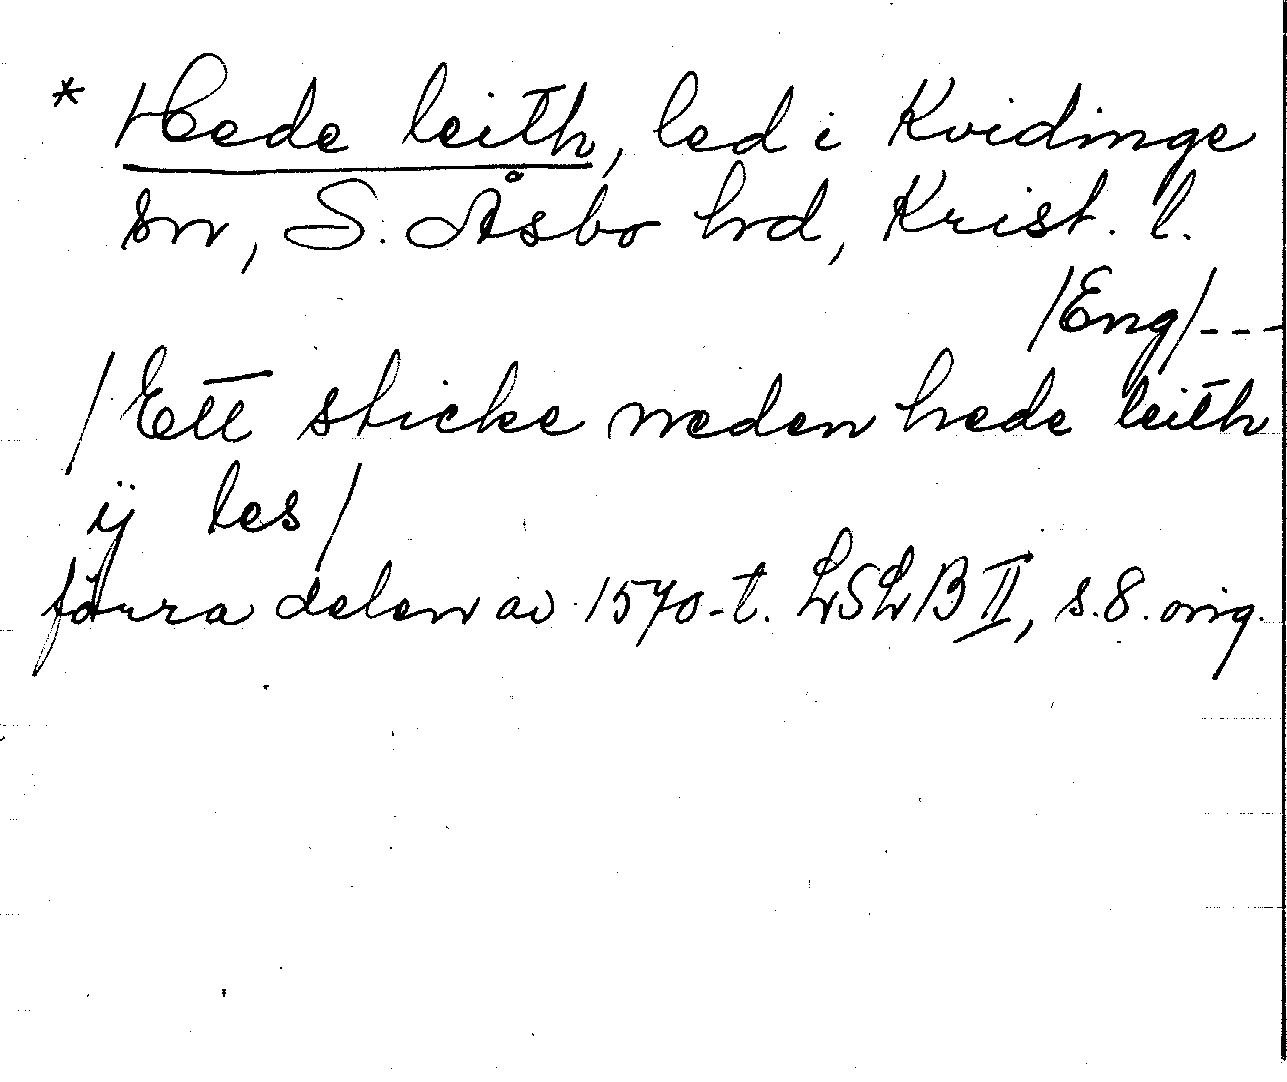 * Hede leith, led i Kvidinge
sn, S. Åsbo hd, Krist. l.
/Eng/---
/Ett sticke neden hede leith
ij les/
förra delen av 1570-t. LSLB II, s. 8. orig.